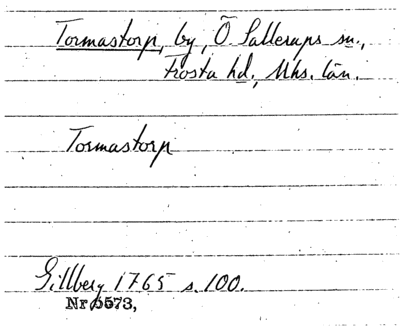 Tormastorp, by, Ö Sallerups sn.,
Frosta hd., Mhs. län.
Tormastorp
Gillberg 1765 s. 100.
Nr 5573,